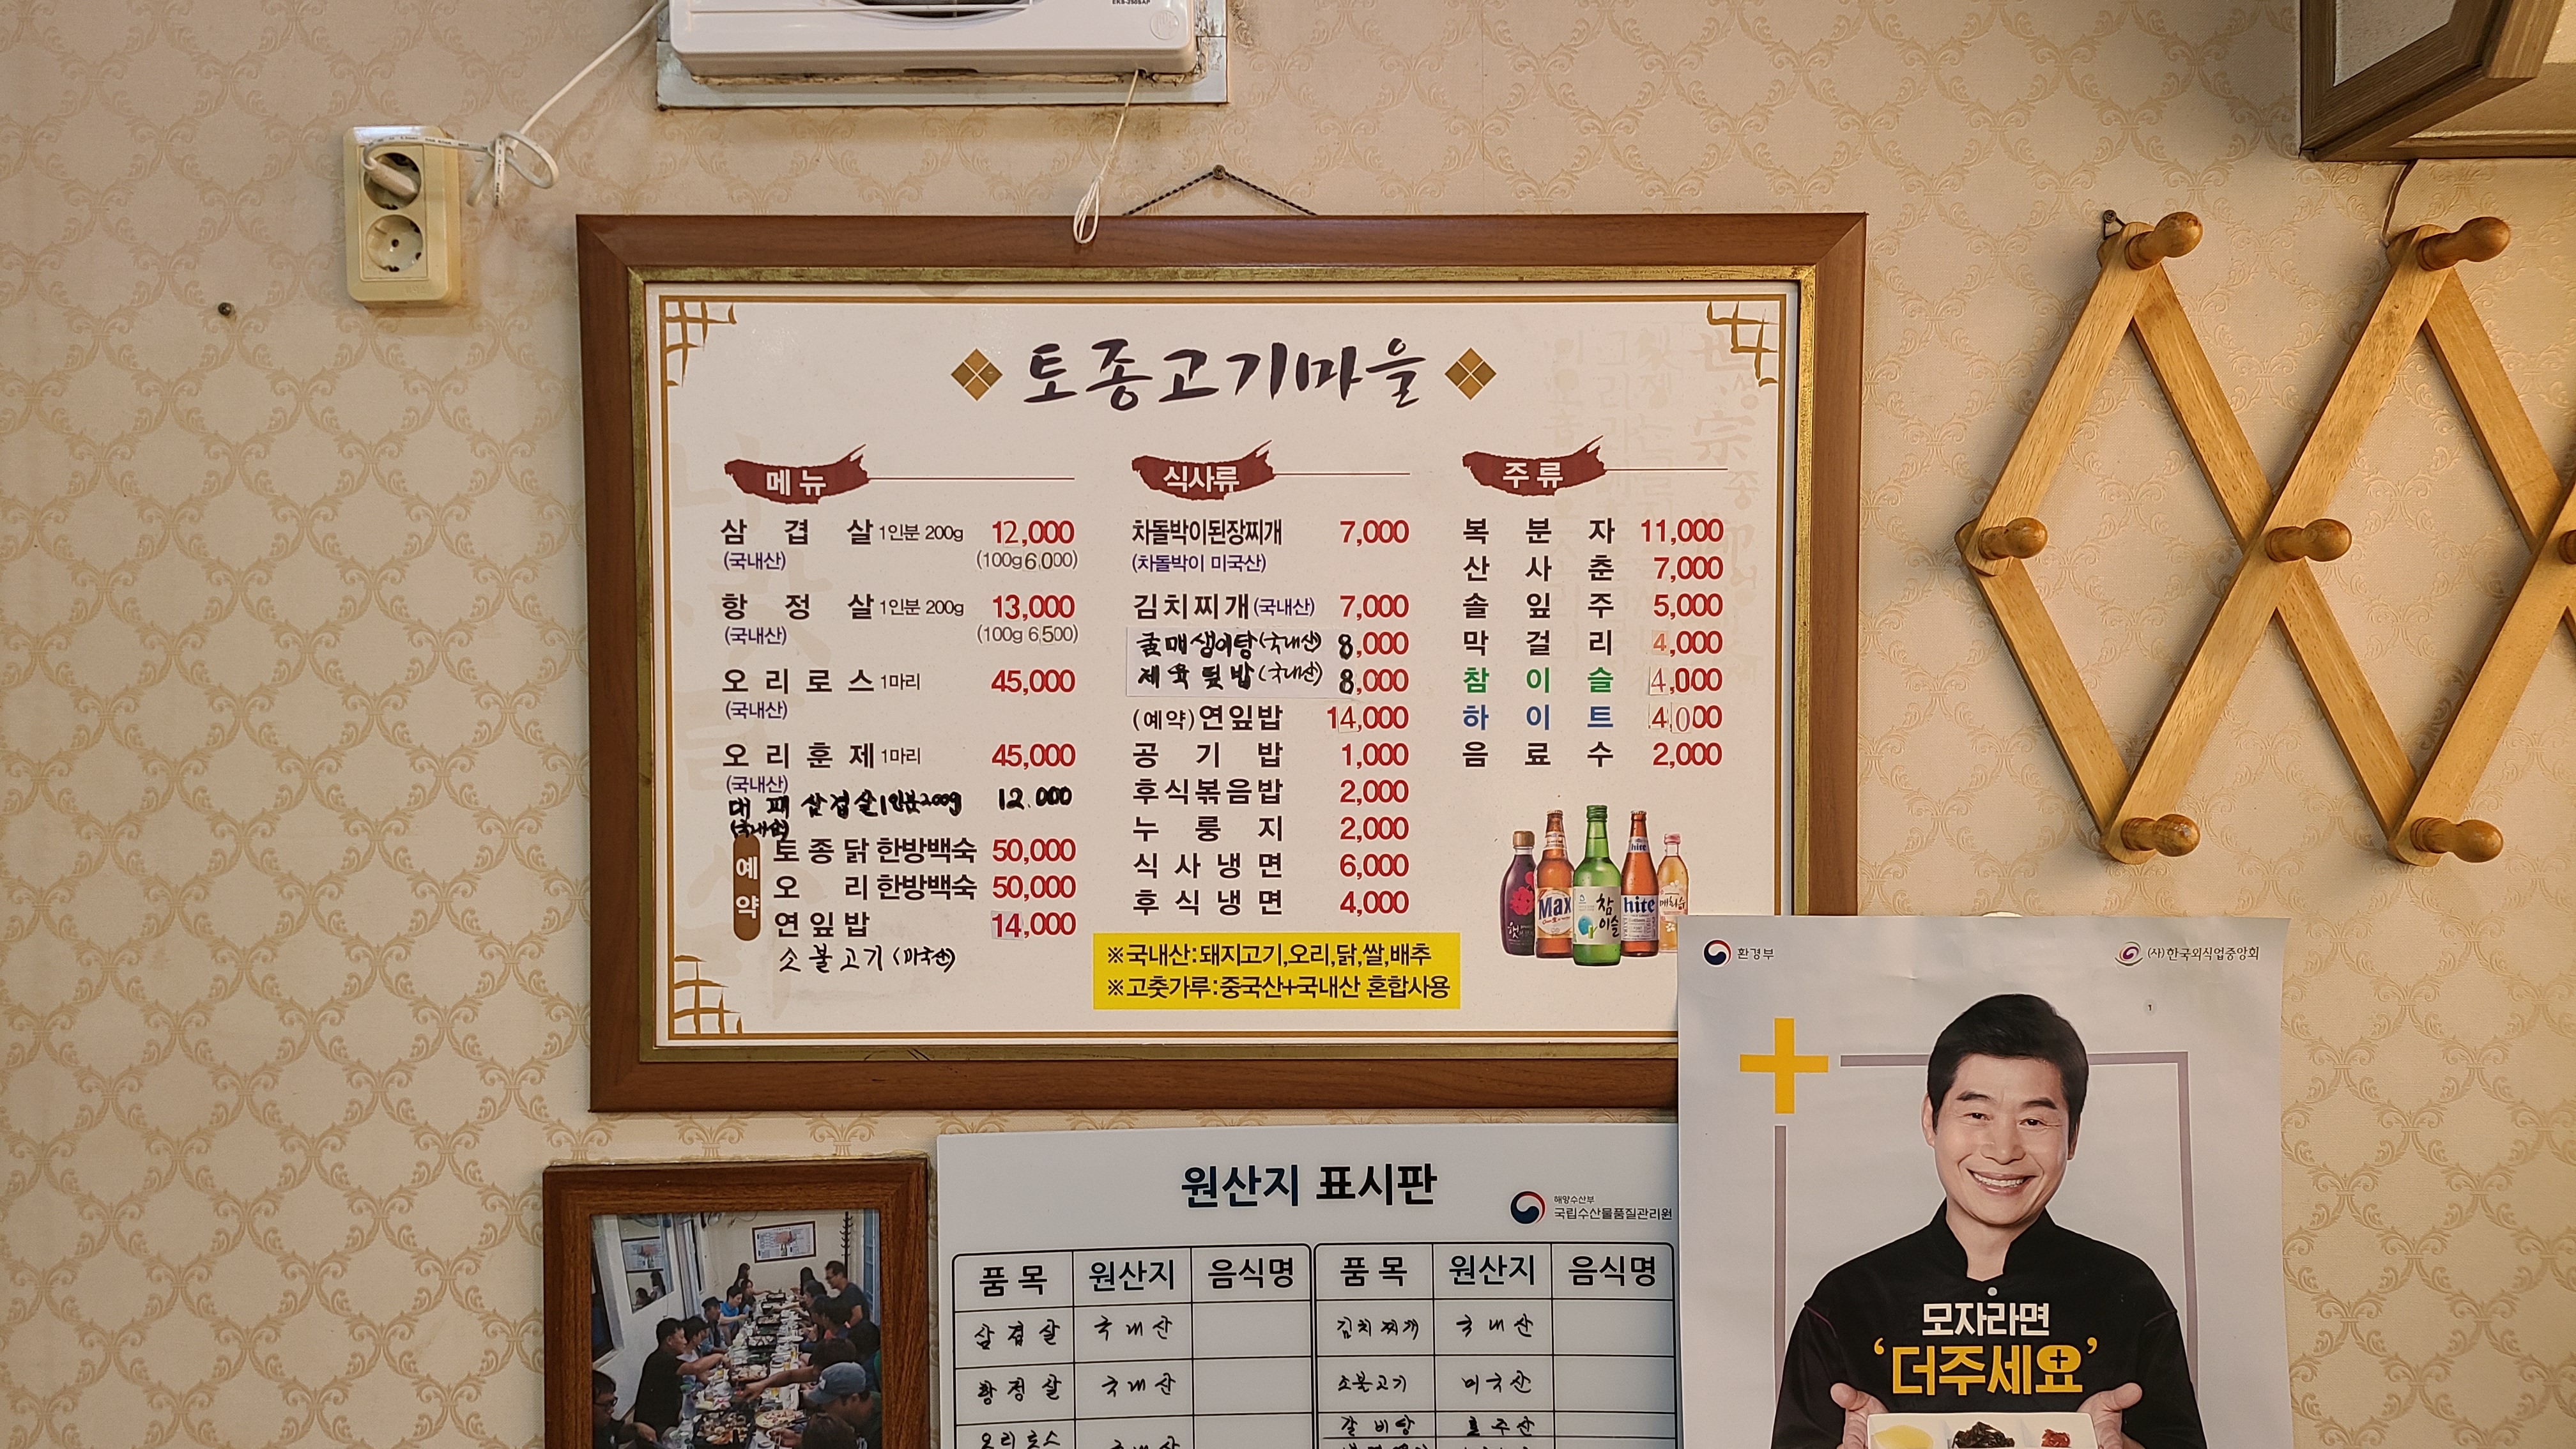 토종고기마을
메뉴
삼겹살 1인분 200g 12,000
(국내산) (100g 6,000)
항정살 1인분 200g 13,000
(국내산) (100g 6,500)
오리로스 1마리 45,000
(국내산)
오리훈제 1마리 45,000
(국내산)
대패삼겹살 1인분 200g 12.000
(국내산)
예약
토종닭 한방백숙 50,000
오리 한방백숙 50,000
연잎밥 14,000
소불고기 (미국산)
식사류
차돌박이된장찌개 7,000
(차돌박이 미국산)
김치찌개 (국내산) 7,000
굴매생이탕 (국내산) 8,000
제육덮밥 (국내산) 8,000
(예약) 연잎밥 14,000
공기밥 1,000
후식볶음밥 2,000
누룽지 2,000
식사냉면 6,000
후식냉면 4,000
※국내산:돼지고기,오리,닭,쌀,배추
※고춧가루:중국산+국내산 혼합사용
주류
복분자 11,000
산사춘 7,000
솔잎주 5,000
막걸리 4,000
참이슬 4,000
하이트 4,000
음료수 2,000
Max
참이슬
hite
hite
원산지 표시판
해양수산부
국립수산물품질관리원
품목 원산지 음식명 품목 원산지 음식명
삼겹살 국내산 김치찌개 국내산
항정살 국내산 소불고기 미국산
오리로스 국내산 갈비탕 호주산
환경부
(사)한국외식업중앙회
모자라면
'더주세요'